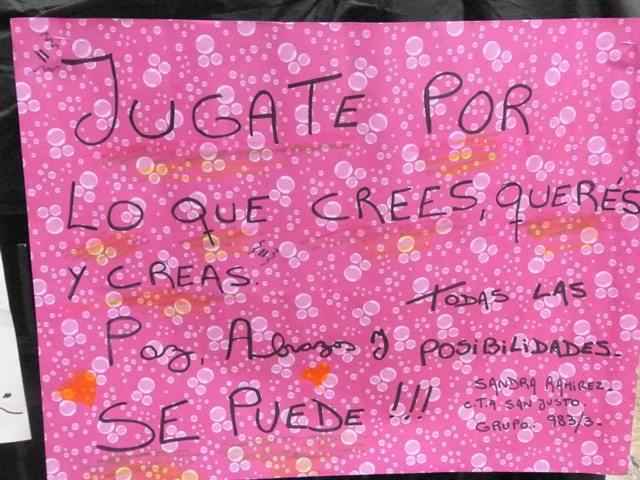 JUGATE POR
LO QUE CREES, QUERÉS
Y CREAS.
TODAS LAS
Paz, Abrazos Y POSIBILIDADES.
SE PUEDE !!!
SANDRA RAMIREZ.
C.T.A SAN JUSTO.
GRUPO. 983/3.